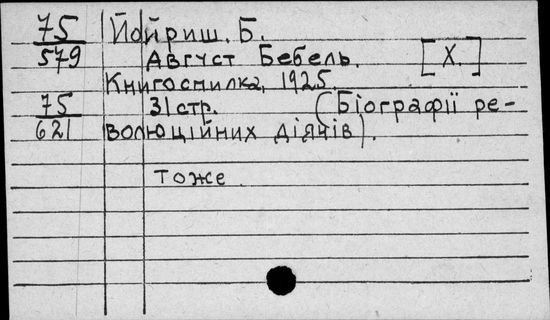 75 Йойриш. Б.
579 Август Бебель. [X.]
Книгоспилка, 1925.
75 31 стр. (Біографії ре-
621 волюційних діячів).
тоже